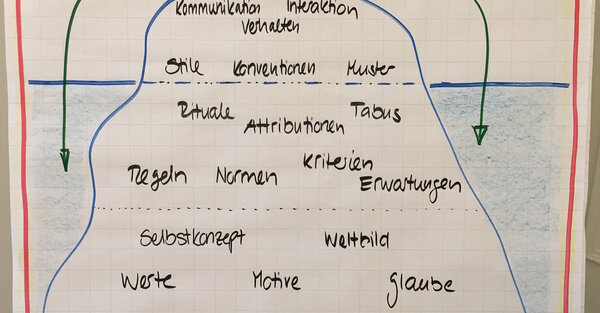 Kommunikation Interaktion
Verhalten
Stile Konventionen Muster
Rituale Attributionen Tabus
Regeln Normen Kriterien Erwartungen
Selbstkonzept Weltbild
Werte Motive Glaube